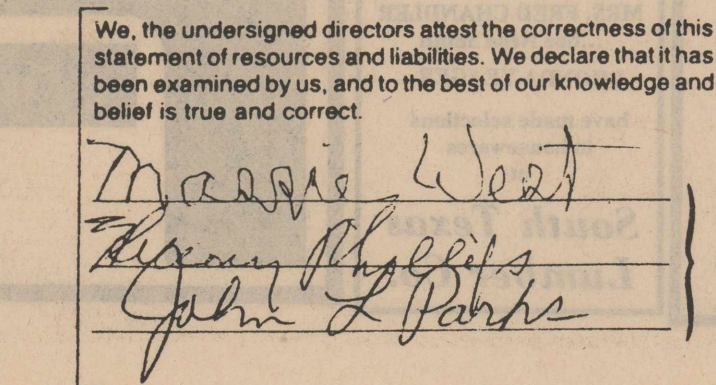 We, the undersigned directors attest the correctness of this
statement of resources and liabilities. We declare that it has
been examined by us, and to the best of our knowledge and
belief is true and correct.
Maggie West
Phillips
John L Parks